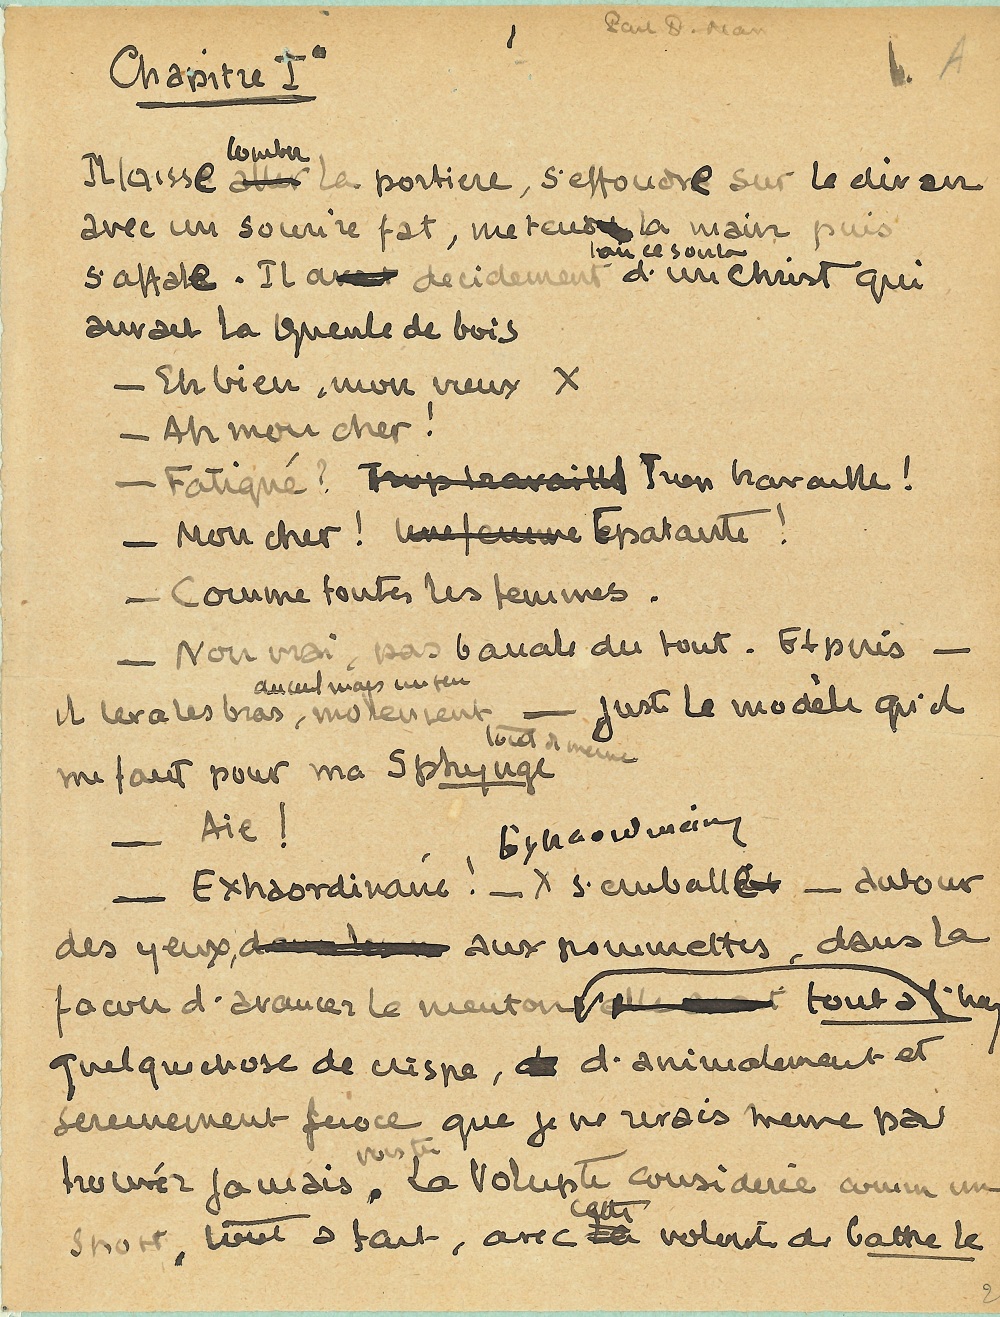 1
Chapitre I°
A
tomber
Il laisse aller la portiere, s'effondre sur le divan
avec un sourire fat, me tend la main puis
l'air ce soir
s'affale. Il a decidement d'un Christ qui
aurait la gueule de bois
— Eh bien, mon vieux X
— Ah mon cher !
— Fatigué ? Trop travaillé Trop travaillé !
— Mon cher ! Une femme Epatante !
— Comme toutes les femmes.
— Non vrai, pas banale du tout. Et puis —
il leva les bras, molement — juste le modèle qu'il
tout de meme
me faut pour ma Sphynge
— Aie !
Extraordinaire
— Extraordinaire ! — X s'emballe — autour
des yeux, aux pommettes, dans la
façon d'avancer le menton tout à l'
quelque chose de crispe, d'animalement et
sereinement feroce que je ne verais meme pas
trouver jamais. La Volupté considerée comme un
cette
sport, tout à fait, avec la volonté de battre le
2